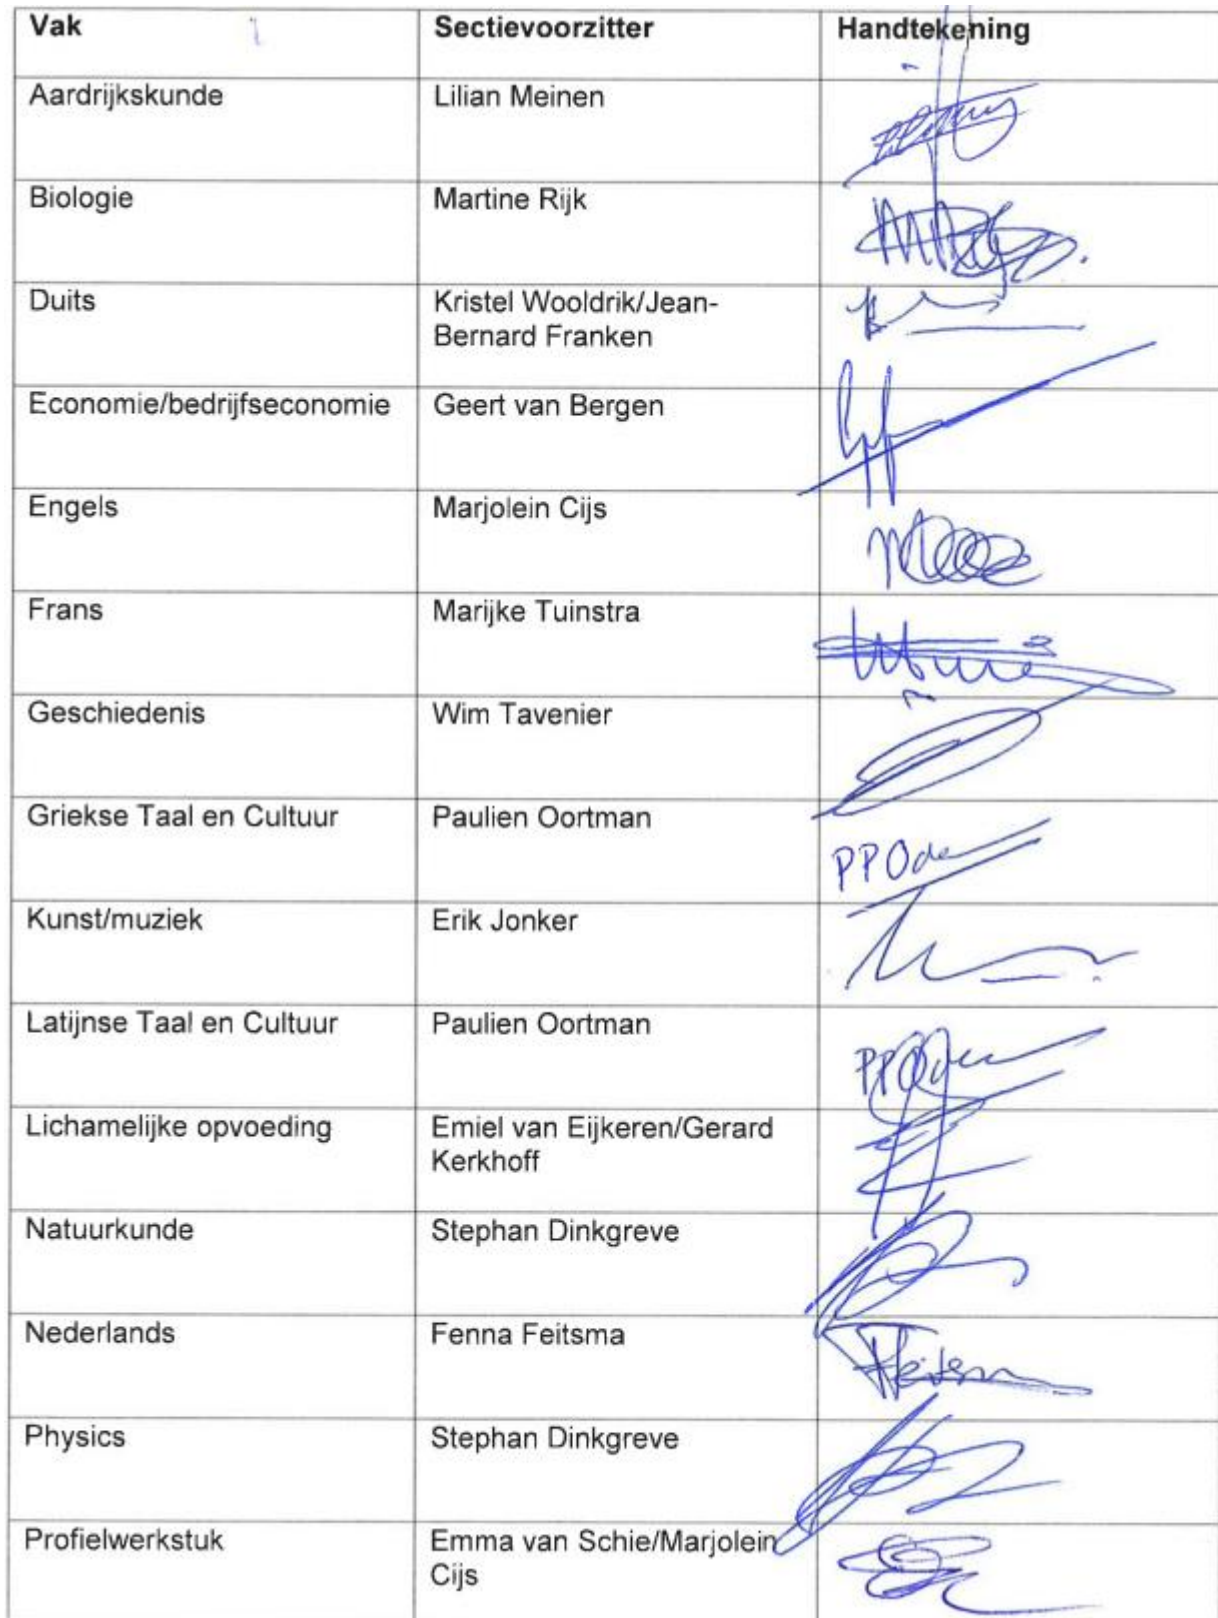 Vak Sectievoorzitter Handtekening
Aardrijkskunde Lilian Meinen
Biologie Martine Rijk
Duits Kristel Wooldrik/Jean-
Bernard Franken
Economie/bedrijfseconomie Geert van Bergen
Engels Marjolein Cijs
Frans Marijke Tuinstra
Geschiedenis Wim Tavenier
Griekse Taal en Cultuur Paulien Oortman
Kunst/muziek Erik Jonker
Latijnse Taal en Cultuur Paulien Oortman
Lichamelijke opvoeding Emiel van Eijkeren/Gerard
Kerkhoff
Natuurkunde Stephan Dinkgreve
Nederlands Fenna Feitsma
Physics Stephan Dinkgreve
Profielwerkstuk Emma van Schie/Marjolein
Cijs